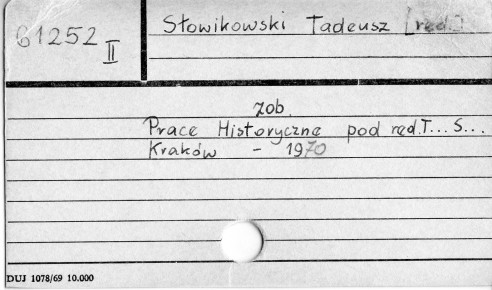 61252 II
Słowikowski Tadeusz [red.]
zob.
Prace Historyczne pod red. T... S...
Kraków - 1970
DUJ 1078/69 10.000